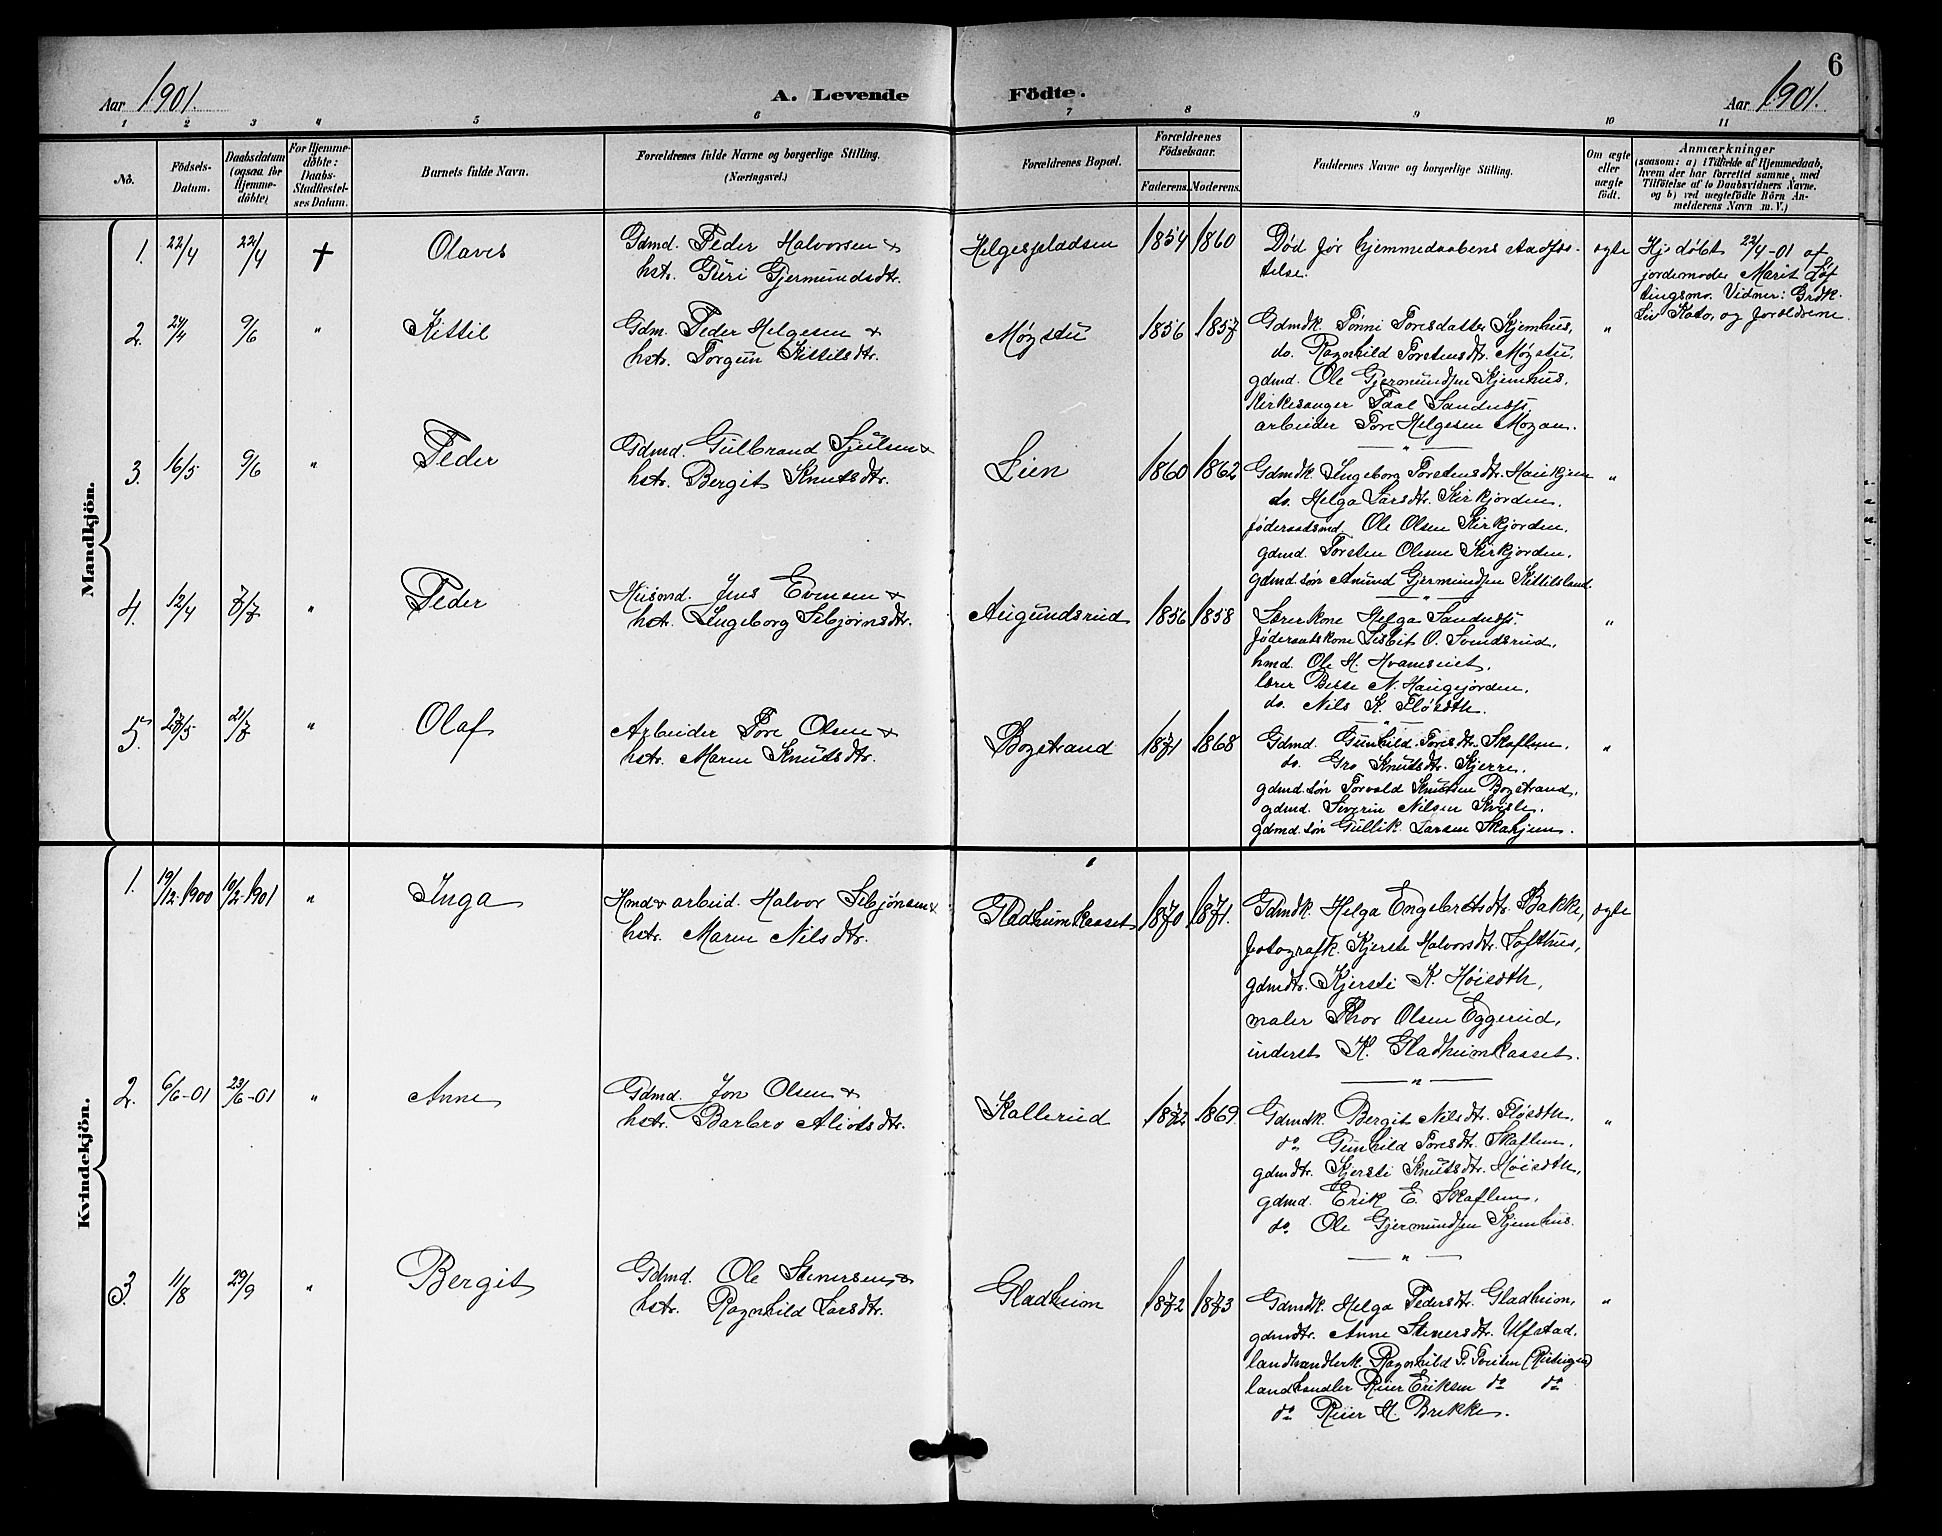 6
Aar 1901. A. Levende Födte. Aar 1901.
1 2 3 4 5 6 7 8 9 10 11
No.
Födsels-Datum.
Daabsdatum (ogsaa for Hjemme-döbte)
For Hjemme-döbte: Daabs-Stadfæstel-ses Datum.
Barnets fulde Navn.
Forældrenes fulde Navne og borgerlige Stilling.
(Næringsvei.)
Forældrenes Bopæl.
Forældrenes Födselsaar.
Faderens. Moderens.
Faddernes Navne og borgerlige Stilling.
Om ægte eller uægte födt.
Anmærkninger
(saasom: a) i Tilfælde af Hjemmedaab,
hvem der har forrettet samme, med
Tilföielse af to Daabsvidners Navne.
og b) ved uægtefödte Börn An-
melderens Navn m. V.)
Mandkjön.
1. 22/4 22/4 † Olaves
Gdmd. Peder Halvorsen &
hstr. Guri Gjermundsdtr.
Helgespladsen 1854 1860
Død før hjemmedaabens stadfæs-
telse.
ægte
Hj. døbt 22/4-01 af
jordemoder Marit Løf
tingsmo. Vidner: Grdk.
Liv Kato, og forældrene.
2. 24/4 9/6 " Kittil
Gdm. Peder Helgesen &
hstr. Torgun Kittilsdtr.
Møgstu 1856 1857
Gdmdk. Tønni Toresdatter Skjemhus,
do. Ragnhild Torstensdtr. Møgstu,
gdmd. Ole Gjermundsen Skjemhus,
kirkesanger Paal Sandness,
arbeider Tore Helgesen Mogan.
"
3. 16/5 9/6 " Peder
Gdmd. Gulbrand Sjulsen &
hstr. Bergit Knutsdtr.
Lien 1860 1862
Gdmdk. Ingeborg Torstensdtr. Haukjem
do. Helga Larsdtr. Kirkjorden,
føderaadsmd. Ole Olsen Kirkjorden,
gdmd. Torsten Olsen Kirkjorden,
gdmd. søn Anund Gjermundsen Kittilsland.
"
4. 12/4 7/7 " Peder
Husmd. Jens Evensen &
hst. Ingeborg Sebjørnsdtr.
Augundsrud 1856 1858
Lærerkone Helga Sandness.
føderaadskone Lisbit O. Svendsrud,
hmd. Ole H. Hvamseiet,
lærer Berte N. Haugejorden,
do. Nils K. Fløsdth.
"
5. 27/5 21/7 " Olaf
Arbeider Tore Olsen &
hstr. Maren Knutsdtr.
Bogstrand 1871 1868
Gdmd. Gunhild Toresdtr. Skaflem,
do. Gro Knutsdtr. Kjerre,
gdmd. søn Torvald Knutsen Bogstrand,
gdmd. Severin Nilsen Kvisle,
gdmd. søn Gullik Larsen Skahjem.
"
Kvindekjön.
1. 19/12-1900 10/2-1901 " Inga
Hmd & arbeid. Halvor Sebjönsen &
hstr. Maren Nilsdtr.
Gladheimkasset 1870 1871.
Gdmdk. Helga Engebretsdtr. Bakke,
fotografk. Kjersti Halvorsdtr. Lofthus,
gdmdtr. Kjersti K. Høisdth,
maler Thor Olsen Eggerud,
inderst K. Gladheimkasset.
ægte
2. 6/6-01 23/6-01 " Anne
Gdmd. Jon Olsen &
hstr. Barbro Aliosdtr.
Kallerud 1872 1869.
Gdmdk. Bergit Nilsdtr. Fløsdth,
do Gunhild Toresdtr. Skaflem,
gdmdtr. Kjersti Knutsdtr. Høisdth,
gdmd. Erik E. Skaflem,
do Ole Gjermundsen Skjemhus.
"
3. 11/8 29/9 " Bergit
Gdmd. Ole Stenersen &
hstr. Ragnhild Larsdtr.
Gladheim 1872 1873
Gdmdk. Helga Pedersdtr. Gladheim,
gdmdtr. Anne Stenersdtr. Ulfstad,
landhandlerk. Ragnhild T. Foriten
landhandler Reier Eriksen do do
do Reier H. Brekke.
"